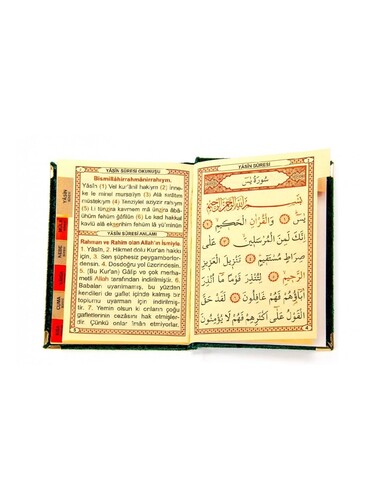 YÂSÎN SÛRESİ OKUNUŞU
Bismillâhirrahmânirrahıym.
Yâsîn (1) Vel kur'ânil hakiym (2) İnne-
ke le minel murseliyn (3) Alâ sırâtım
müstekıym (4) Tenziylel aziyzir rahıym
(5) Li tünzira kavmem mâ ünzira âbâ-
ühüm fehüm ğâfilûn (6) Le kad hakkal
kavlü alâ ekserihim fehüm lâ yü'minûn
YÂSÎN SÛRESİ ANLAMI
Rahman ve Rahîm olan Allah'ın İsmiyle.
1. Yâsîn. 2. Hikmet dolu Kur'an hakkı
için. 3. Sen şüphesiz peygamberler-
densin. 4. Dosdoğru yol üzerindesin.
5. (Bu Kur'an) Gâlip ve çok merha-
metli Allah tarafından indirilmiştir. 6.
Babaları uyarılmamış, bu yüzden
kendileri de gaflet içinde kalmış bir
toplumu uyarman için indirilmiş-
tir. 7. Yemin olsun ki onların çoğu
gafletlerinin cezasını hak etmişler-
dir. Çünkü onlar îman etmiyorlar.
YÂSÎN
CUMA
YÂSÎN SÛRESİ
سُورَةُ يٰسٓ
بِسْمِ اللّٰهِ الرَّحْمٰنِ الرَّحِيمِ
يٰسٓ ﴿١﴾ وَالْقُرْاٰنِ الْحَكِيمِ ﴿٢﴾
اِنَّكَ لَمِنَ الْمُرْسَلِينَ ﴿٣﴾ عَلٰى
صِرَاطٍ مُسْتَقِيمٍ ﴿٤﴾ تَنْزِيلَ الْعَزِيزِ
الرَّحِيمِ ﴿٥﴾ لِتُنْذِرَ قَوْمًا مَٓا اُنْذِرَ
اٰبَٓاؤُهُمْ فَهُمْ غَافِلُونَ ﴿٦﴾ لَقَدْ حَقَّ
الْقَوْلُ عَلٰٓى اَكْثَرِهِمْ فَهُمْ لَا يُؤْمِنُونَ